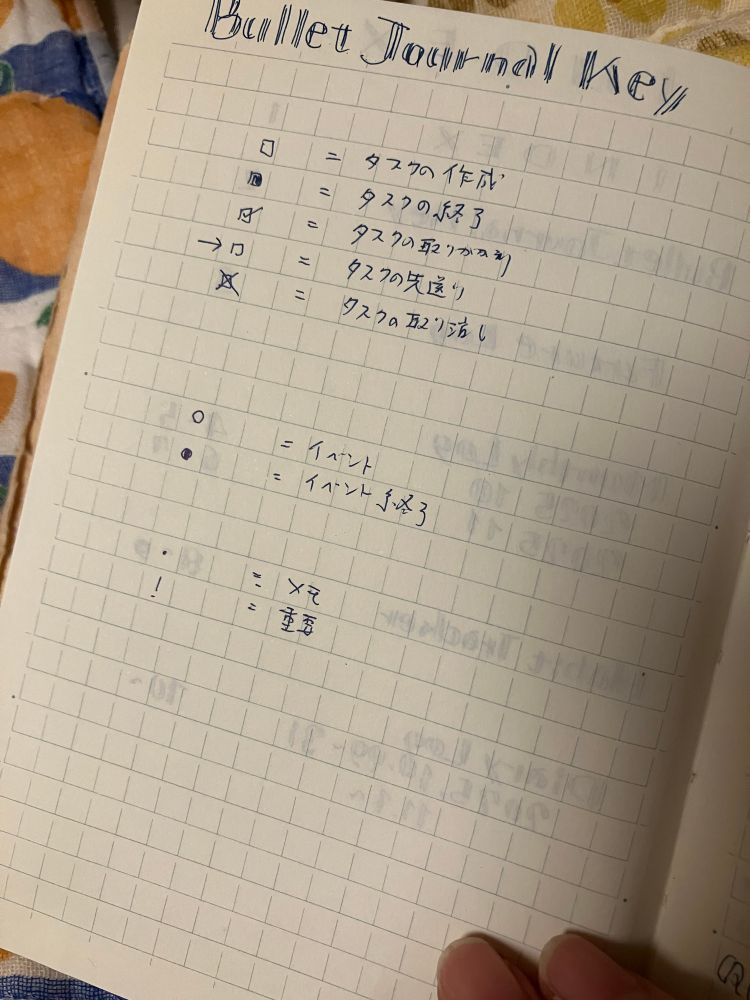 Bullet Journal Key
□ = タスクの作成
■ = タスクの終了
☑ = タスクの取りかかり
→□ = タスクの先送り
☒ = タスクの取り消し
○ = イベント
● = イベント終了
・ = メモ
! = 重要